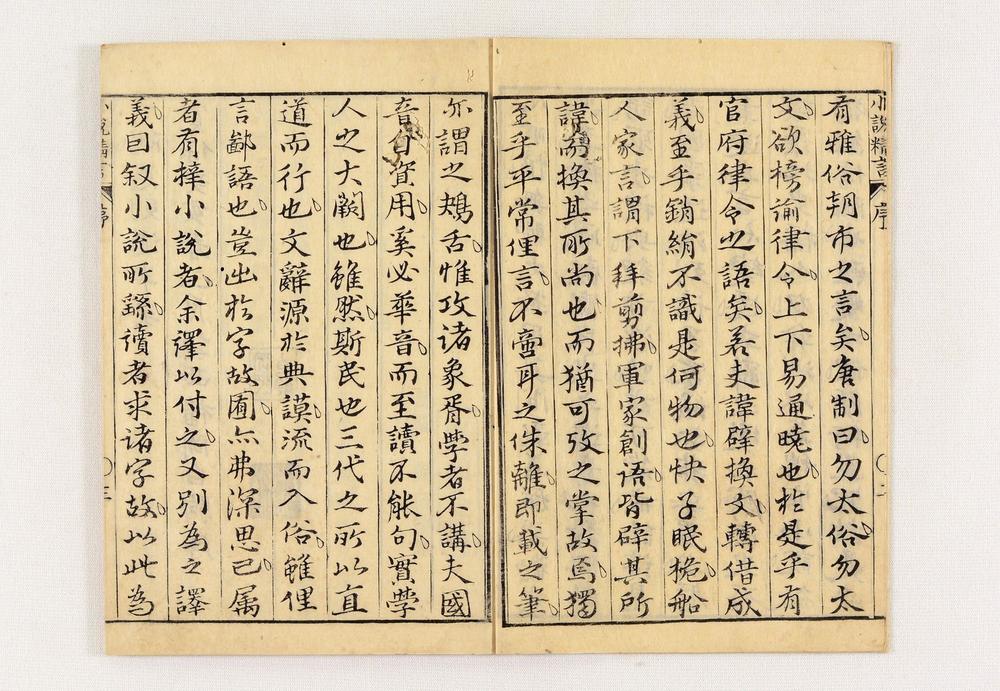 小說精言 序 〇二
有雅俗朝市之言矣唐制曰勿太俗勿太
文欲榜諭律令上下易通曉也於是乎有
官府律令之語矣若夫諱辟換文轉借成
義至乎銷絹不識是何物也快子眠桅船
人家言謂下拜剪拂軍家創語皆辟其所
諱而換其所尚也而猶可攷之掌故焉獨
至乎平常俚言不啻耳之侏離即載之筆
亦謂之鴂舌惟攻諸象胥學者不講夫國
音自資用奚必華音而至讀不能句實學
人之大闕也雖然斯民也三代之所以直
道而行也文辭源於典謨流而入俗雖俚
言鄙語也豈出於字故囿亦弗深思已屬
者有擇小說者余譯以付之又別為之譯
義曰叙小說所繇讀者求诸字故以此為
小說精言 序 〇三